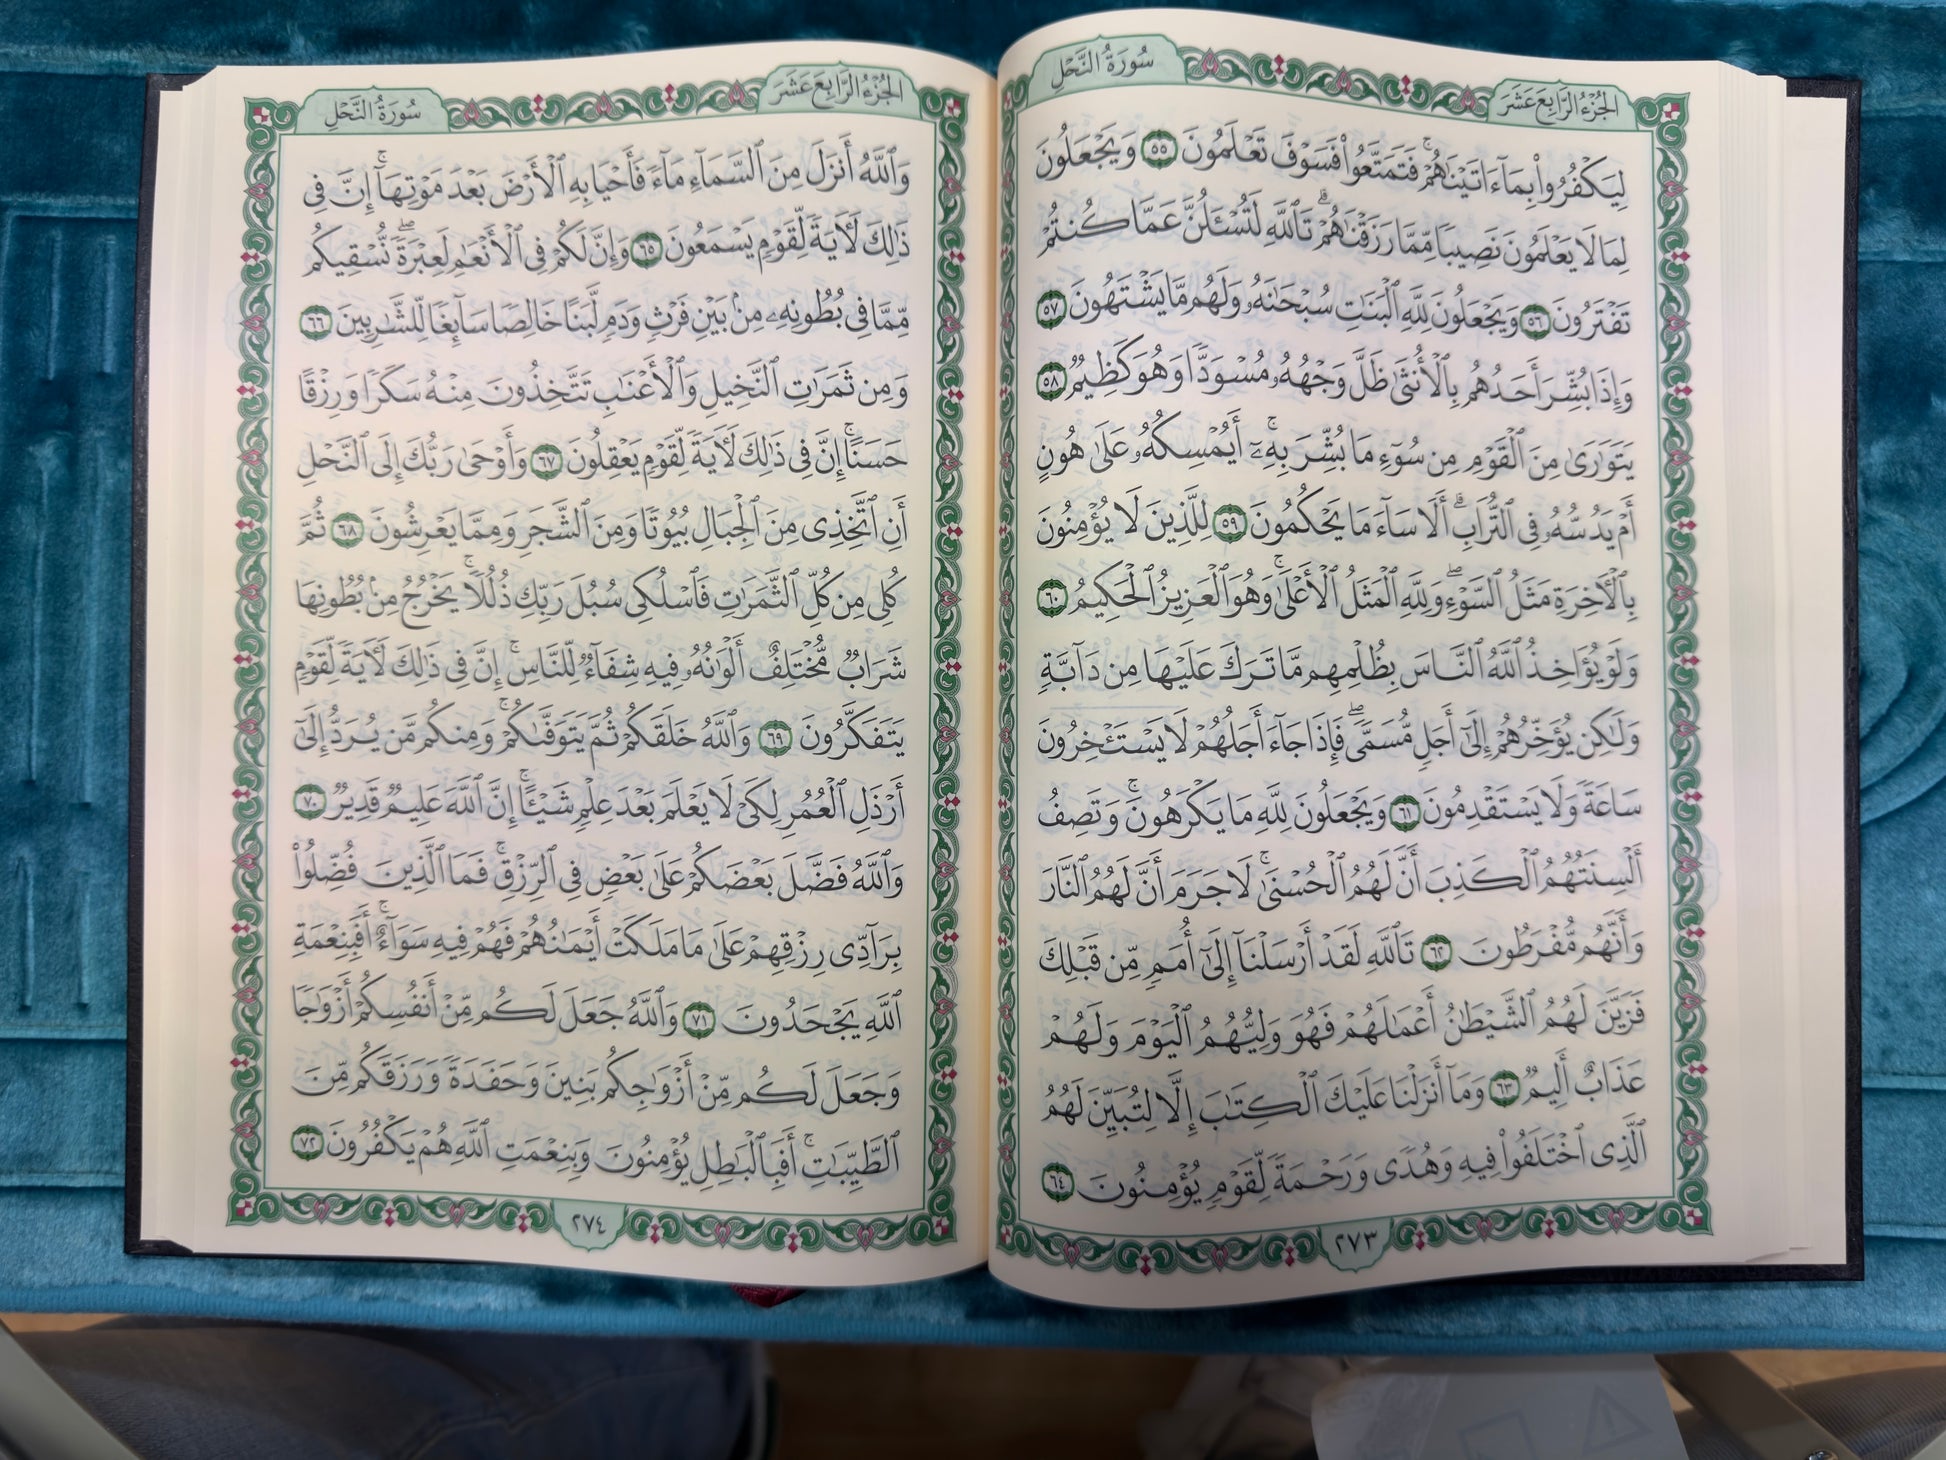 سُورَةُ النَّحْلِ
الجُزْءُ الرَّابِعَ عَشَرَ
لِيَكْفُرُوا۟ بِمَآ ءَاتَيْنَٰهُمْ ۚ فَتَمَتَّعُوا۟ فَسَوْفَ تَعْلَمُونَ ٥٥ وَيَجْعَلُونَ
لِمَا لَا يَعْلَمُونَ نَصِيبًا مِّمَّا رَزَقْنَٰهُمْ ۗ تَٱللَّهِ لَتُسْـَٔلُنَّ عَمَّا كُنتُمْ
تَفْتَرُونَ ٥٦ وَيَجْعَلُونَ لِلَّهِ ٱلْبَنَٰتِ سُبْحَٰنَهُۥ وَلَهُم مَّا يَشْتَهُونَ ٥٧
وَإِذَا بُشِّرَ أَحَدُهُم بِٱلْأُنثَىٰ ظَلَّ وَجْهُهُۥ مُسْوَدًّا وَهُوَ كَظِيمٌ ٥٨
يَتَوَٰرَىٰ مِنَ ٱلْقَوْمِ مِن سُوٓءِ مَا بُشِّرَ بِهِۦٓ ۚ أَيُمْسِكُهُۥ عَلَىٰ هُونٍ
أَمْ يَدُسُّهُۥ فِى ٱلتُّرَابِ ۗ أَلَا سَآءَ مَا يَحْكُمُونَ ٥٩ لِلَّذِينَ لَا يُؤْمِنُونَ
بِٱلْـَٔاخِرَةِ مَثَلُ ٱلسَّوْءِ ۖ وَلِلَّهِ ٱلْمَثَلُ ٱلْأَعْلَىٰ ۚ وَهُوَ ٱلْعَزِيزُ ٱلْحَكِيمُ ٦٠
وَلَوْ يُؤَاخِذُ ٱللَّهُ ٱلنَّاسَ بِظُلْمِهِم مَّا تَرَكَ عَلَيْهَا مِن دَآبَّةٍ
وَلَٰكِن يُؤَخِّرُهُمْ إِلَىٰٓ أَجَلٍ مُّسَمًّى ۖ فَإِذَا جَآءَ أَجَلُهُمْ لَا يَسْتَـْٔخِرُونَ
سَاعَةً وَلَا يَسْتَقْدِمُونَ ٦١ وَيَجْعَلُونَ لِلَّهِ مَا يَكْرَهُونَ ۚ وَتَصِفُ
أَلْسِنَتُهُمُ ٱلْكَذِبَ أَنَّ لَهُمُ ٱلْحُسْنَىٰ ۖ لَا جَرَمَ أَنَّ لَهُمُ ٱلنَّارَ
وَأَنَّهُم مُّفْرَطُونَ ٦٢ تَٱللَّهِ لَقَدْ أَرْسَلْنَآ إِلَىٰٓ أُمَمٍ مِّن قَبْلِكَ
فَزَيَّنَ لَهُمُ ٱلشَّيْطَٰنُ أَعْمَٰلَهُمْ فَهُوَ وَلِيُّهُمُ ٱلْيَوْمَ وَلَهُمْ
عَذَابٌ أَلِيمٌ ٦٣ وَمَآ أَنزَلْنَا عَلَيْكَ ٱلْكِتَٰبَ إِلَّا لِتُبَيِّنَ لَهُمُ
ٱلَّذِى ٱخْتَلَفُوا۟ فِيهِ وَهُدًى وَرَحْمَةً لِّقَوْمٍ يُؤْمِنُونَ ٦٤
٢٧٣
سُورَةُ النَّحْلِ
الجُزْءُ الرَّابِعَ عَشَرَ
وَٱللَّهُ أَنزَلَ مِنَ ٱلسَّمَآءِ مَآءً فَأَحْيَا بِهِ ٱلْأَرْضَ بَعْدَ مَوْتِهَآ ۚ إِنَّ فِى
ذَٰلِكَ لَـَٔايَةً لِّقَوْمٍ يَسْمَعُونَ ٦٥ وَإِنَّ لَكُمْ فِى ٱلْأَنْعَٰمِ لَعِبْرَةً ۖ نُّسْقِيكُم
مِّمَّا فِى بُطُونِهِۦ مِنۢ بَيْنِ فَرْثٍ وَدَمٍ لَّبَنًا خَالِصًا سَآئِغًا لِّلشَّٰرِبِينَ ٦٦
وَمِن ثَمَرَٰتِ ٱلنَّخِيلِ وَٱلْأَعْنَٰبِ تَتَّخِذُونَ مِنْهُ سَكَرًا وَرِزْقًا
حَسَنًا ۗ إِنَّ فِى ذَٰلِكَ لَـَٔايَةً لِّقَوْمٍ يَعْقِلُونَ ٦٧ وَأَوْحَىٰ رَبُّكَ إِلَى ٱلنَّحْلِ
أَنِ ٱتَّخِذِى مِنَ ٱلْجِبَالِ بُيُوتًا وَمِنَ ٱلشَّجَرِ وَمِمَّا يَعْرِشُونَ ٦٨ ثُمَّ
كُلِى مِن كُلِّ ٱلثَّمَرَٰتِ فَٱسْلُكِى سُبُلَ رَبِّكِ ذُلُلًا ۚ يَخْرُجُ مِنۢ بُطُونِهَا
شَرَابٌ مُّخْتَلِفٌ أَلْوَٰنُهُۥ فِيهِ شِفَآءٌ لِّلنَّاسِ ۗ إِنَّ فِى ذَٰلِكَ لَـَٔايَةً لِّقَوْمٍ
يَتَفَكَّرُونَ ٦٩ وَٱللَّهُ خَلَقَكُمْ ثُمَّ يَتَوَفَّىٰكُمْ ۚ وَمِنكُم مَّن يُرَدُّ إِلَىٰٓ
أَرْذَلِ ٱلْعُمُرِ لِكَىْ لَا يَعْلَمَ بَعْدَ عِلْمٍ شَيْـًٔا ۚ إِنَّ ٱللَّهَ عَلِيمٌ قَدِيرٌ ٧٠
وَٱللَّهُ فَضَّلَ بَعْضَكُمْ عَلَىٰ بَعْضٍ فِى ٱلرِّزْقِ ۚ فَمَا ٱلَّذِينَ فُضِّلُوا۟
بِرَآدِّى رِزْقِهِمْ عَلَىٰ مَا مَلَكَتْ أَيْمَٰنُهُمْ فَهُمْ فِيهِ سَوَآءٌ ۚ أَفَبِنِعْمَةِ
ٱللَّهِ يَجْحَدُونَ ٧١ وَٱللَّهُ جَعَلَ لَكُم مِّنْ أَنفُسِكُمْ أَزْوَٰجًا
وَجَعَلَ لَكُم مِّنْ أَزْوَٰجِكُم بَنِينَ وَحَفَدَةً وَرَزَقَكُم مِّنَ
ٱلطَّيِّبَٰتِ ۚ أَفَبِٱلْبَٰطِلِ يُؤْمِنُونَ وَبِنِعْمَتِ ٱللَّهِ هُمْ يَكْفُرُونَ ٧٢
٢٧٤